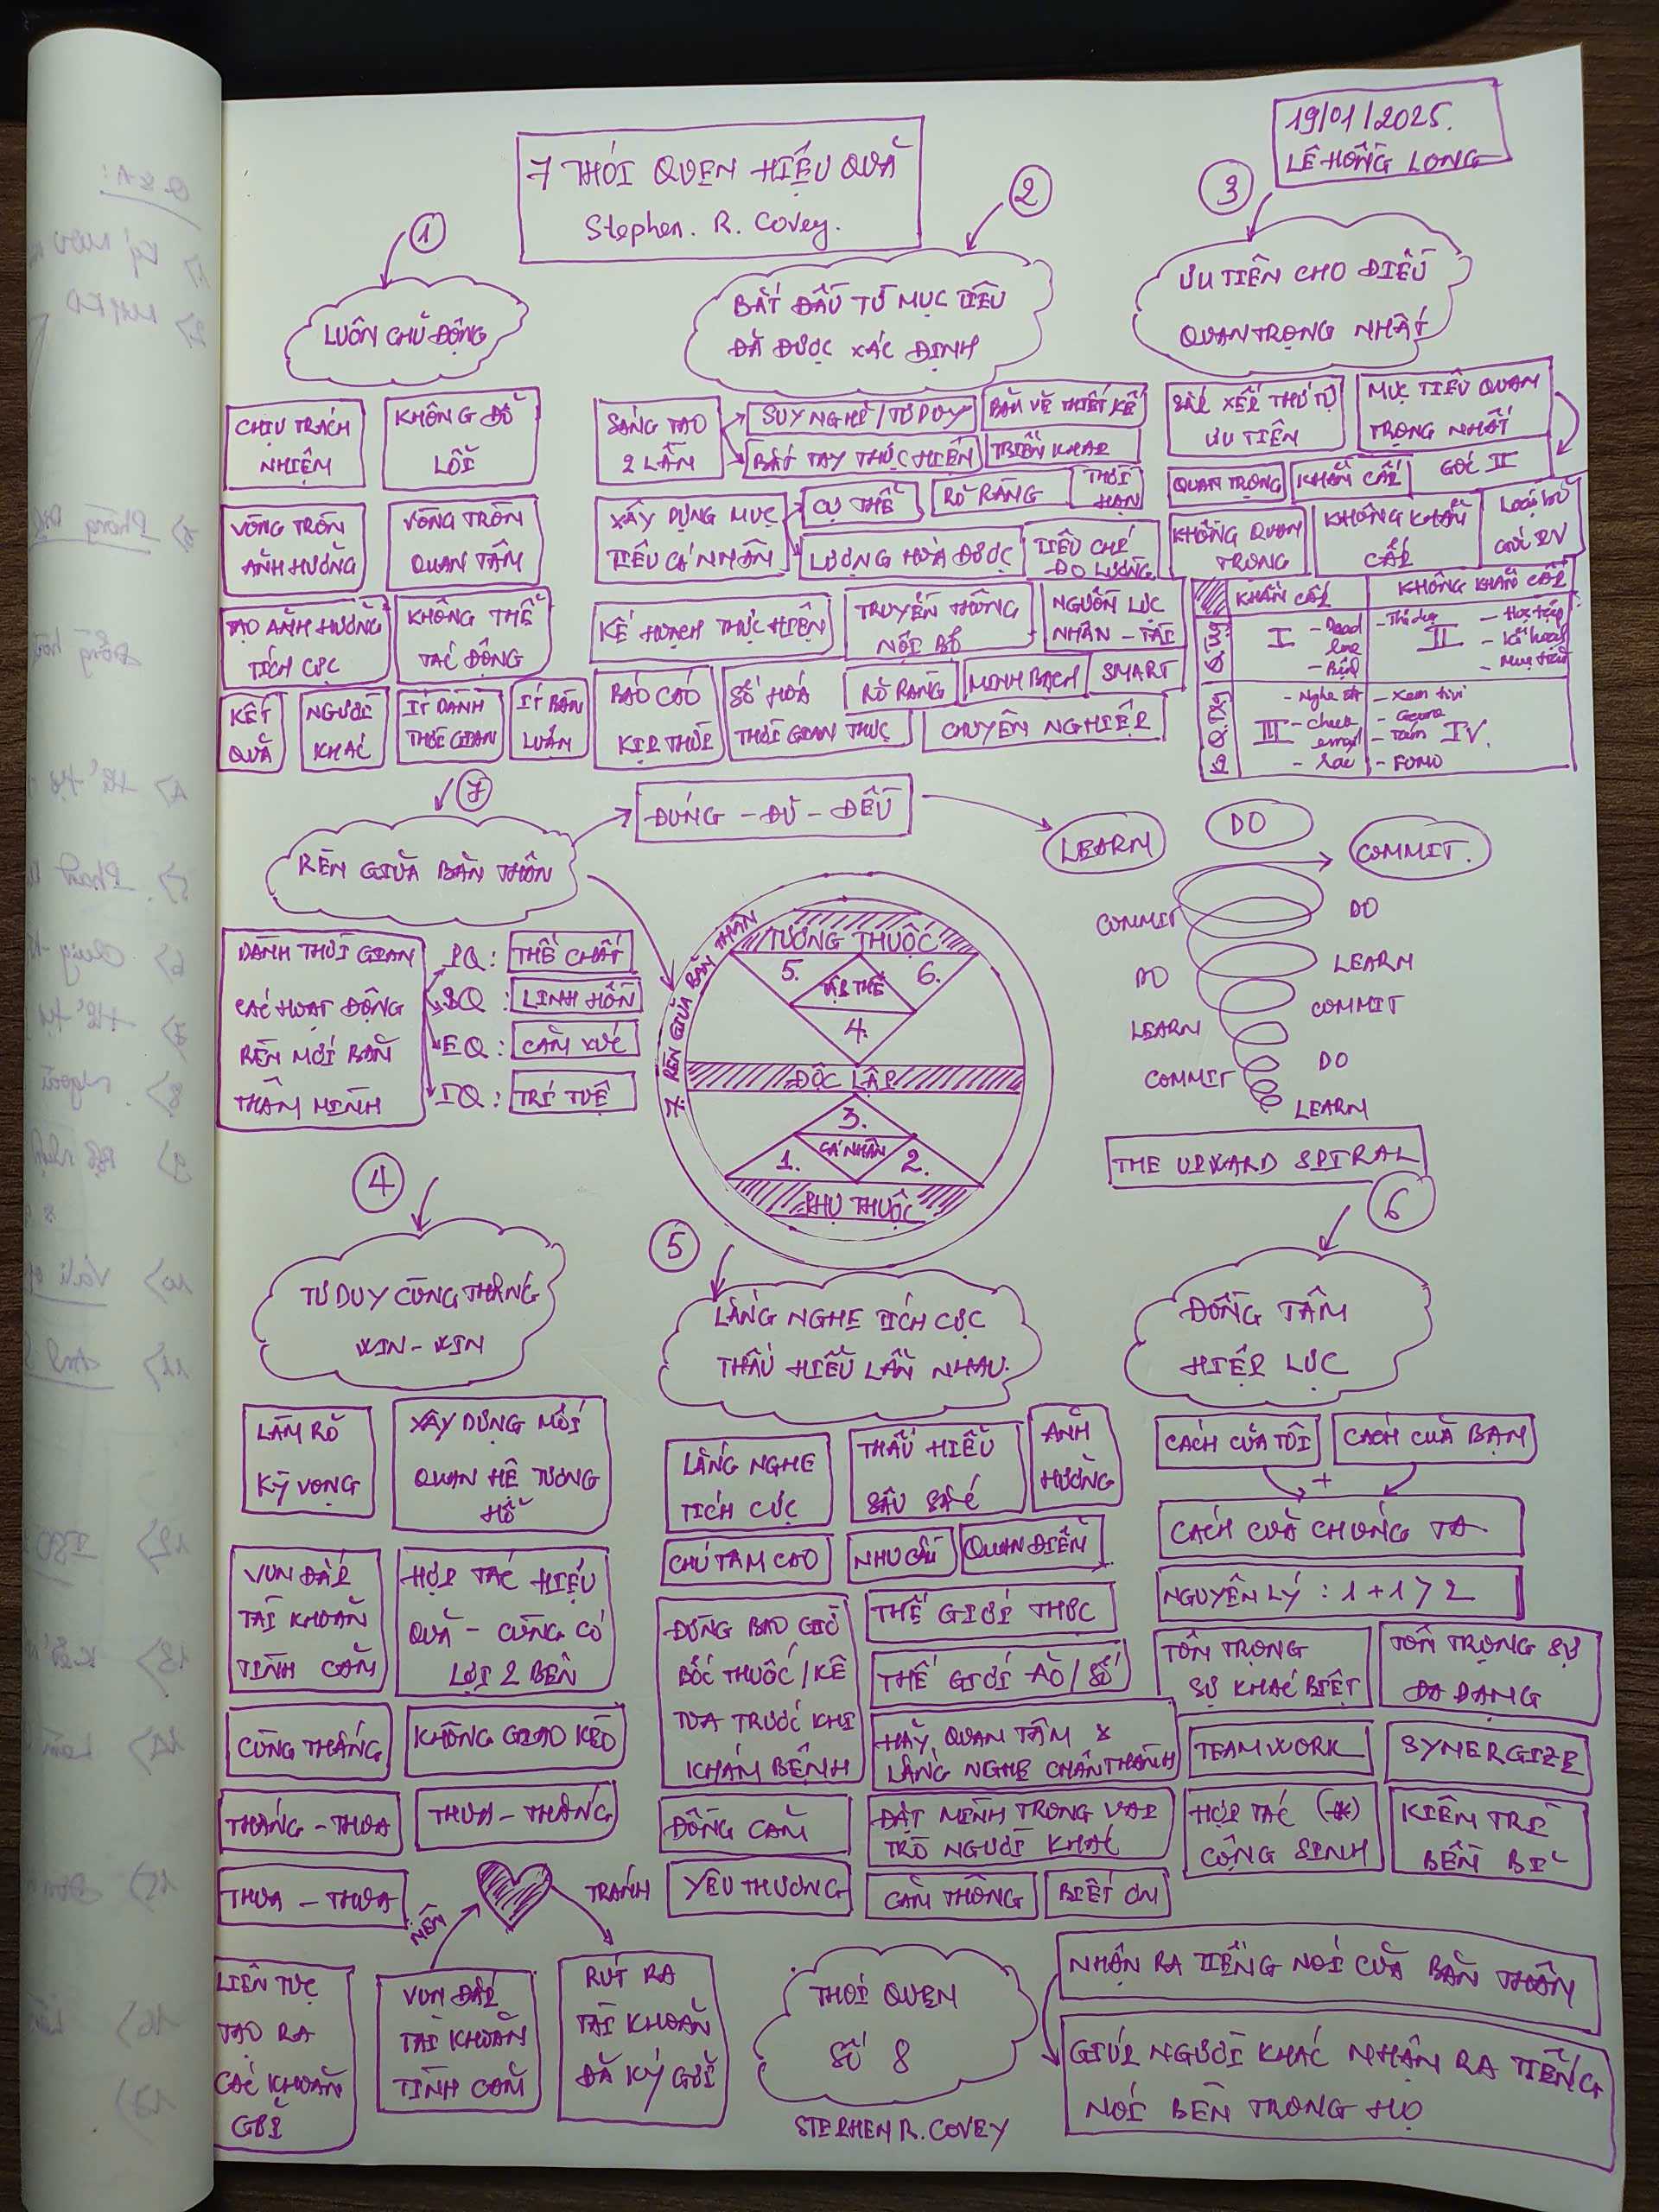 19/01/2025.
LÊ HỒNG LONG
7 THÓI QUEN HIỆU QUẢ
Stephen. R. Covey.
1
LUÔN CHỦ ĐỘNG
CHỊU TRÁCH
NHIỆM
KHÔNG ĐỔ
LỖI
VÒNG TRÒN
ẢNH HƯỞNG
VÒNG TRÒN
QUAN TÂM
TẠO ẢNH HƯỞNG
TÍCH CỰC
KHÔNG THỂ
TÁC ĐỘNG
KẾT
QUẢ
NGƯỜI
KHÁC
ÍT DÀNH
THỜI GIAN
ÍT BÀN
LUẬN
2
BẮT ĐẦU TỪ MỤC TIÊU
ĐÃ ĐƯỢC XÁC ĐỊNH
SÁNG TẠO
2 LẦN
SUY NGHĨ/TƯ DUY
BẢN VẼ THIẾT KẾ
BẮT TAY THỰC HIỆN
TRIỂN KHAI
XÂY DỰNG MỤC
TIÊU CÁ NHÂN
CỤ THỂ
RÕ RÀNG
THỜI
HẠN
LƯỢNG HOÁ ĐƯỢC
TIÊU CHÍ
ĐO LƯỜNG
KẾ HOẠCH THỰC HIỆN
TRUYỀN THÔNG
NỘI BỘ
NGUỒN LỰC
NHÂN - TÀI
BÁO CÁO
KỊP THỜI
SỐ HOÁ
THỜI GIAN THỰC
RÕ RÀNG
MINH BẠCH
SMART
CHUYÊN NGHIỆP
3
ƯU TIÊN CHO ĐIỀU
QUAN TRỌNG NHẤT
SẮP XẾP THỨ TỰ
ƯU TIÊN
MỤC TIÊU QUAN
TRỌNG NHẤT
QUAN TRỌNG
KHẨN CẤP
GÓC II
KHÔNG QUAN
TRỌNG
KHÔNG KHẨN
CẤP
LOẠI BỎ
GÓC IV
KHẨN CẤP
KHÔNG KHẨN CẤP
I
- Dead
line
- Thể dục
II
- Học tập
- Kế hoạch
- Mục tiêu
III
email
- rác
- Xem tivi
- Game
IV.
- FOMO
7
RÈN GIŨA BẢN THÂN
ĐÚNG - ĐỦ - ĐỀU
LEARN
DO
COMMIT.
COMMIT
DO
DO
LEARN
LEARN
COMMIT
COMMIT
DO
LEARN
THE UPWARD SPIRAL
DÀNH THỜI GIAN
CÁC HOẠT ĐỘNG
RÈN MỚI BẢN
THÂN MÌNH
PQ: THỂ CHẤT
SQ: LINH HỒN
EQ: CẢM XÚC
IQ: TRÍ TUỆ
7. RÈN GIŨA BẢN THÂN
TƯƠNG THUỘC
5.
TẬP THỂ
6.
4.
ĐỘC LẬP
3.
1.
CÁ NHÂN
2.
PHỤ THUỘC
4
TƯ DUY CÙNG THẮNG
WIN - WIN
LÀM RÕ
KỲ VỌNG
XÂY DỰNG MỐI
QUAN HỆ TƯƠNG
HỖ
VUN ĐẮP
TÀI KHOẢN
TÌNH CẢM
HỢP TÁC HIỆU
QUẢ - CÙNG CÓ
LỢI 2 BÊN
CÙNG THẮNG
KHÔNG GIAO KÈO
THẮNG - THUA
THUA - THẮNG
THUA - THUA
NÊN
TRÁNH
LIÊN TỤC
TẠO RA
CÁC KHOẢN
GỬI
VUN ĐẮP
TÀI KHOẢN
TÌNH CẢM
RÚT RA
TÀI KHOẢN
ĐÃ KÝ GỬI
5
LẮNG NGHE TÍCH CỰC
THẤU HIỂU LẪN NHAU.
LẮNG NGHE
TÍCH CỰC
THẤU HIỂU
SÂU SẮC
ẢNH
HƯỞNG
CHÚ TÂM CAO
NHU CẦU
QUAN ĐIỂM
ĐỪNG BAO GIỜ
BỐC THUỐC/KÊ
TOA TRƯỚC KHI
KHÁM BỆNH
THẾ GIỚI THỰC
THẾ GIỚI ẢO/SỐ
HÃY QUAN TÂM &
LẮNG NGHE CHÂN THÀNH
ĐỒNG CẢM
ĐẶT MÌNH TRONG VAI
TRÒ NGƯỜI KHÁC
YÊU THƯƠNG
CẢM THÔNG
BIẾT ƠN
6
ĐỒNG TÂM
HIỆP LỰC
CÁCH CỦA TÔI
CÁCH CỦA BẠN
+
CÁCH CỦA CHÚNG TA
NGUYÊN LÝ : 1 + 1 > 2
TÔN TRỌNG
SỰ KHÁC BIỆT
TÔN TRỌNG SỰ
ĐA DẠNG
TEAMWORK
SYNERGIZE
HỢP TÁC (+)
CỘNG SINH
KIÊN TRÌ
BỀN BỈ
THÓI QUEN
SỐ 8
STEPHEN R. COVEY
NHẬN RA TIẾNG NÓI CỦA BẢN THÂN
GIÚP NGƯỜI KHÁC NHẬN RA TIẾNG
NÓI BÊN TRONG HỌ